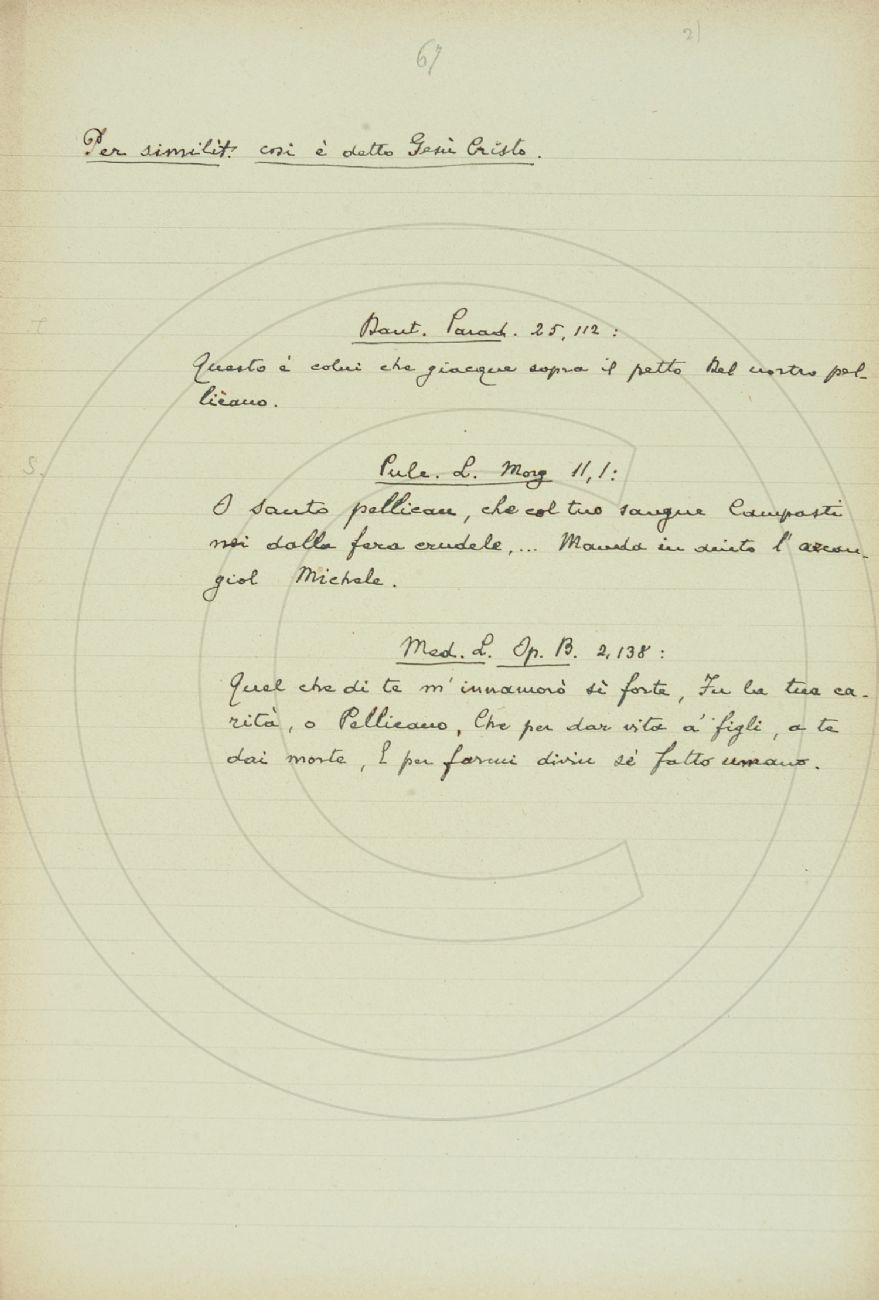 2)
67
Per similit. così è detto Gesù Cristo.
Dant. Parad. 25, 112 :
Questo è colui che giacque sopra il petto Del nostro pel-
licano.
S.
Pulc. L. Morg 11, 1 :
O santo pellican, che col tuo sangue Campasti
noi dalla fera crudele,... Manda in aiuto l'arcan-
giol Michele.
Med. L. Op. B. 2, 138 :
Quel che di te m'innamorò sì forte, Fu la tua ca-
rità, o Pellicano, Che per dar vita a' figli, a te
dai morte, E per farmi divin sè fatto umano.